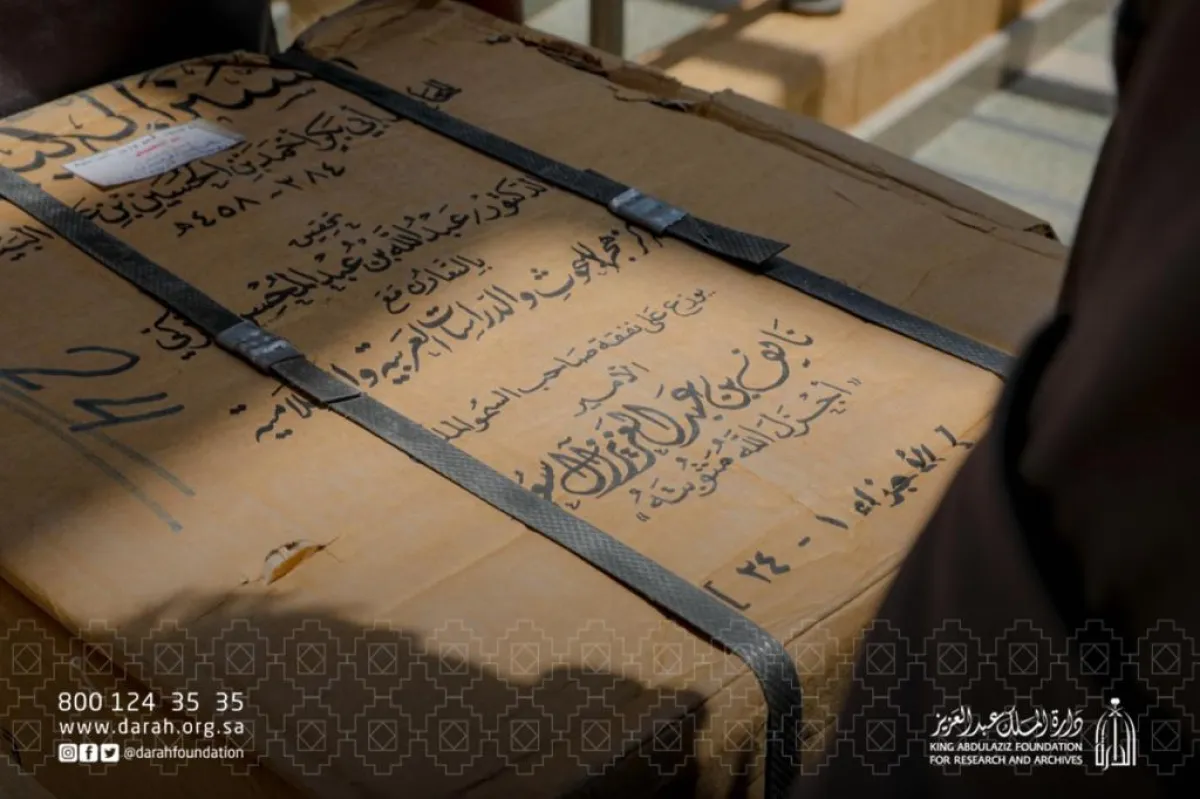 السنن الكبير
لأبي بكر أحمد بن الحسين بن علي البيهقي
٣٨٤ - ٤٥٨ هـ
تحقيق
الدكتور / عبد الله بن عبد المحسن التركي
بالتعاون مع
مركز هجر للبحوث والدراسات العربية والإسلامية
يوزع على نفقة صاحب السمو الملكي
الأمير
نايف بن عبد العزيز آل سعود
« أَجْزَلَ اللهُ مَثُوبَتَهُ »
[ الأجزاء ١ - ٢٤ ]
24
800 124 35 35
www.darah.org.sa
@darahfoundation
دارة الملك عبد العزيز
KING ABDULAZIZ FOUNDATION
FOR RESEARCH AND ARCHIVES
الدارة